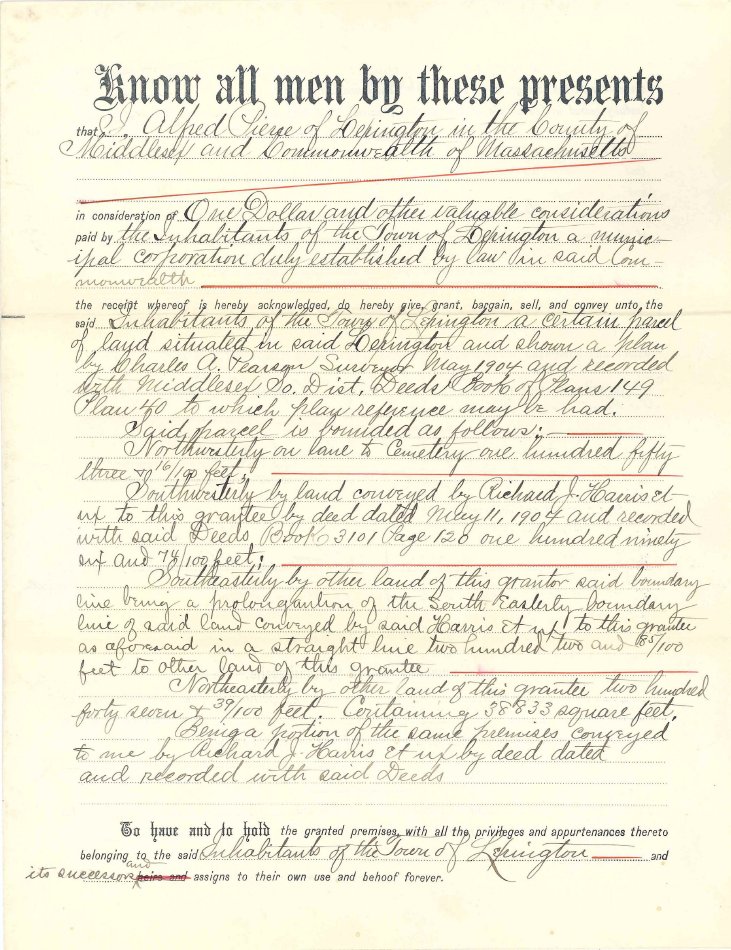 Know all men by these presents
that I. Alfred Pierce of Lexington in the County of
Middlesex and Commonwealth of Massachusetts
in consideration of One Dollar and other valuable considerations
paid by the Inhabitants of the Town of Lexington a munic-
ipal corporation duly established by law in said Com-
monwealth
the receipt whereof is hereby acknowledged, do hereby give, grant, bargain, sell, and convey unto, the
said Inhabitants of the Town of Lexington a certain parcel
of land situated in said Lexington and shown a plan
by Charles A. Pearson Surveyor May 1904 and recorded
with Middlesex So. Dist. Deeds Book of Plans 149
Plan 40 to which plan reference may be had.
Said parcel is bounded as follows:-
Northwesterly on lane to Cemetery one hundred fifty
three & 16/100 feet;
Southwesterly by land conveyed by Richard J. Harris et
ux to this grantee by deed dated May 11, 1904 and recorded
with said Deeds, Book 3101 Page 120 one hundred ninety
six and 74/100 feet;
Southeasterly by other land of this grantor said boundary
line being a prolongation of the South Easterly boundary
line of said land conveyed by said Harris et ux to this grantee
as aforesaid in a straight line two hundred two and 85/100
feet to other land of this grantee
Northeasterly by other land of this grantee two hundred
forty seven & 39/100 feet. Containing 38833 square feet.
Being a portion of the same premises conveyed
to me by Richard J. Harris et ux by deed dated
and recorded with said Deeds
To have and to hold the granted premises, with all the privileges and appurtenances thereto
belonging to the said Inhabitants of the Town of Lexington and
its successors and heirs and assigns to their own use and behoof forever.